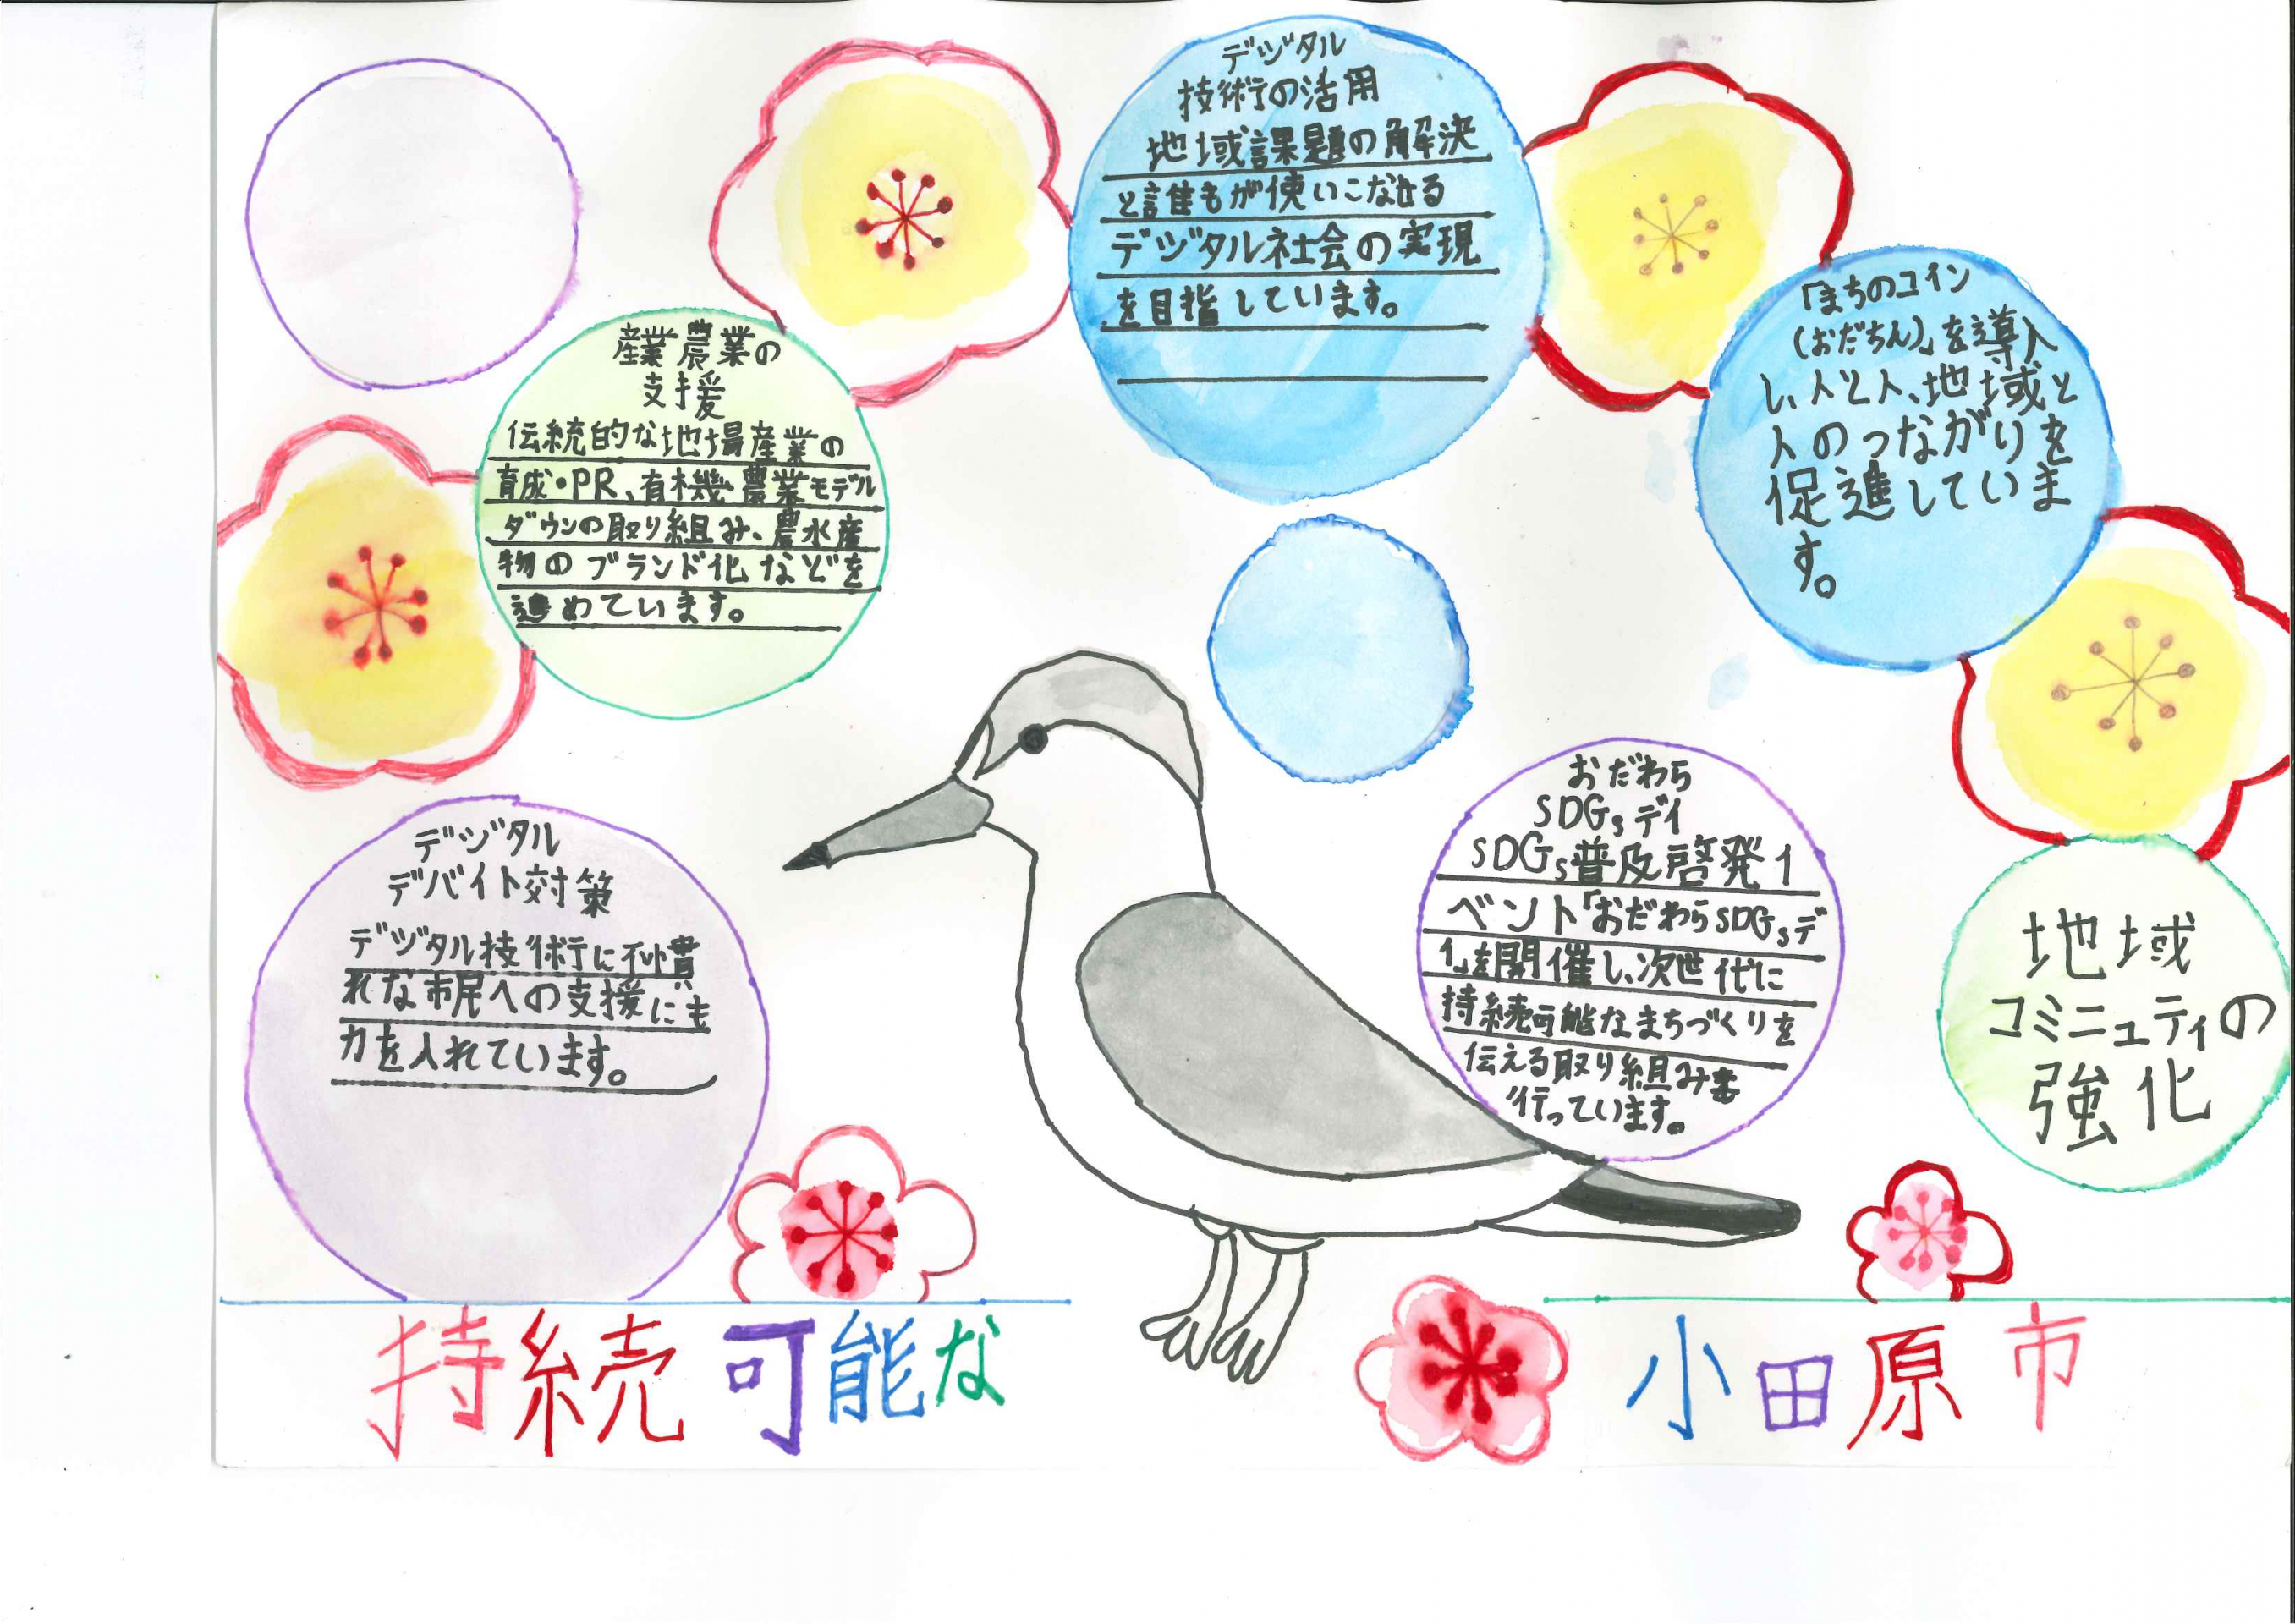 デジタル
技術の活用
地域課題の解決
と誰もが使いこなせる
デジタル社会の実現
を目指しています。
「まちのコイン
(おだちん)」を導入
し、人と人、地域と
人のつながりを
促進していま
す。
産業農業の
支援
伝統的な地場産業の
育成・PR、有機農業モデル
ダウンの取り組み、農水産
物のブランド化などを
進めています。
デジタル
デバイト対策
デジタル技術に不慣
れな市民への支援にも
力を入れています。
おだわら
SDGsデイ
SDGs普及啓発イ
ベント「おだわらSDGsデ
イ」を開催し、次世代に
持続可能なまちづくりを
伝える取り組みも
行っています。
地域
コミニュティの
強化
持続可能な
小田原市